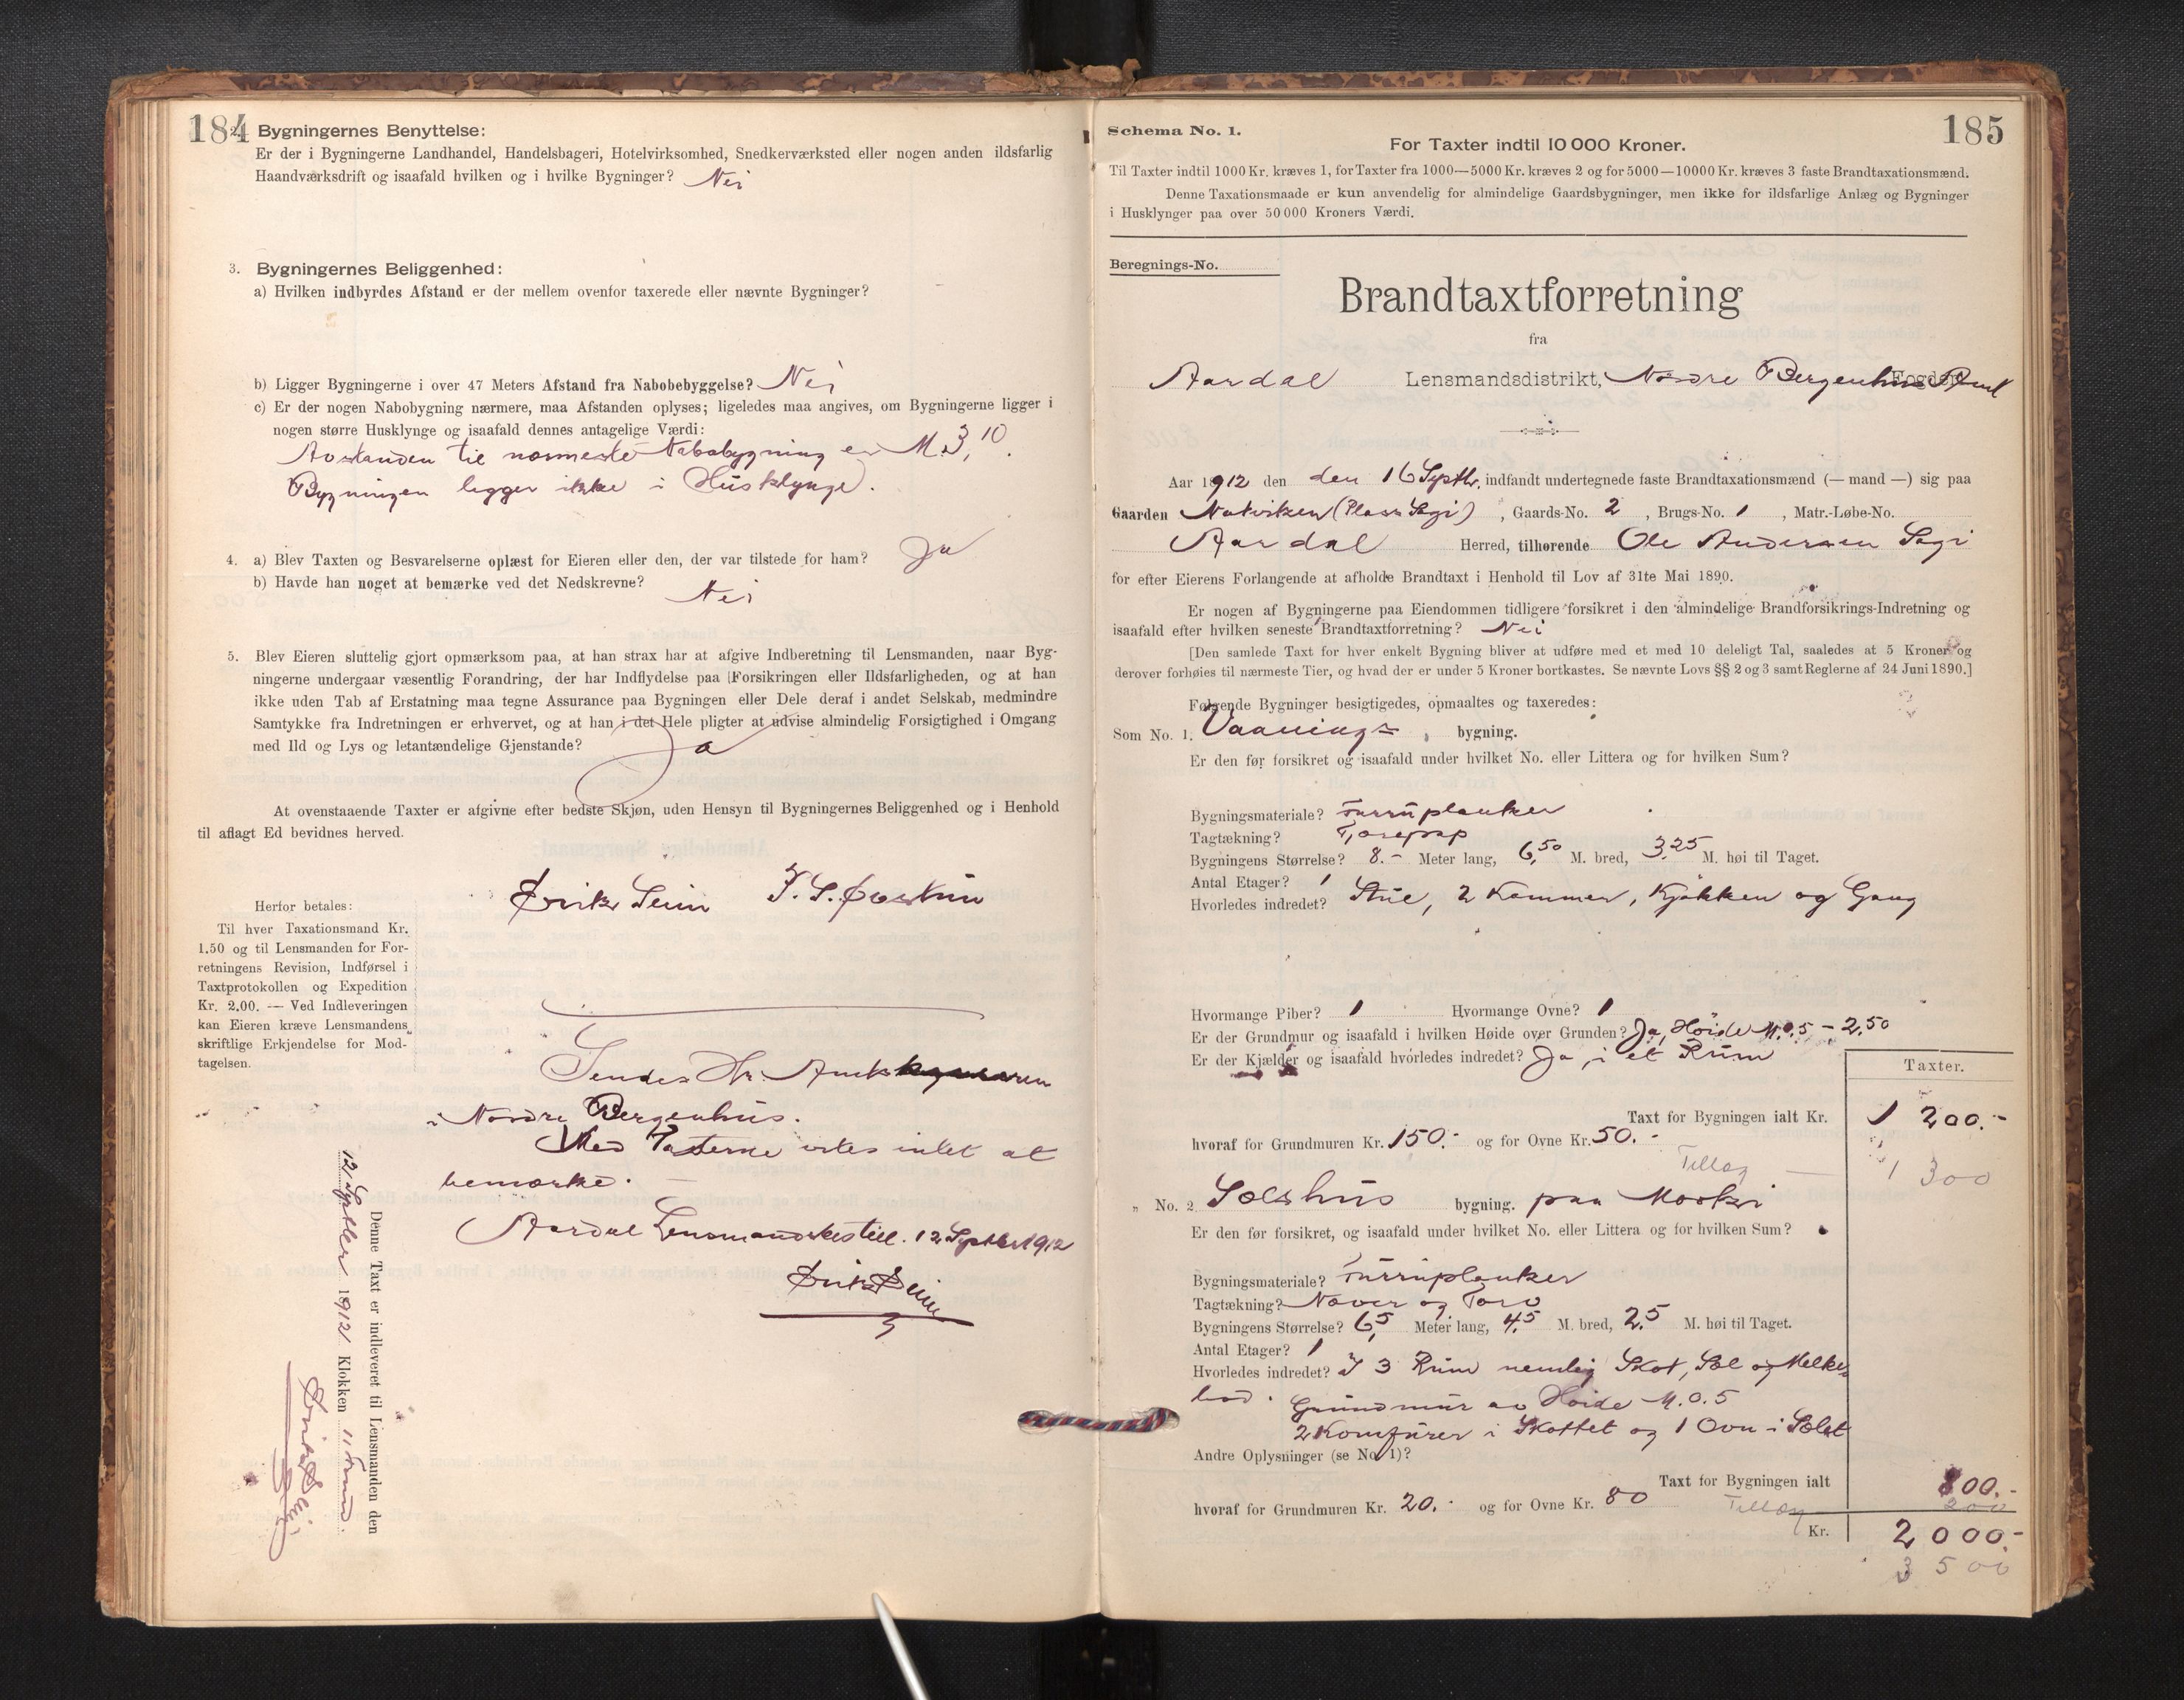 184
2. Bygningernes Benyttelse:
Er der i Bygningerne Landhandel, Handelsbageri, Hotelvirksomhed, Snedkerværksted eller nogen anden ildsfarlig
Haandværksdrift og isaafald hvilken og i hvilke Bygninger? Nei
3. Bygningernes Beliggenhed:
a) Hvilken indbyrdes Afstand er der mellem ovenfor taxerede eller nævnte Bygninger?
b) Ligger Bygningerne i over 47 Meters Afstand fra Nabobebyggelse? Nei
c) Er der nogen Nabobygning nærmere, maa Afstanden oplyses; ligeledes maa angives, om Bygningerne ligger i
nogen større Husklynge og isaafald dennes antagelige Værdi:
Avstanden til nærmeste Nabobygning er M. 3,10.
Bygningen ligger ikke i Husklynge.
4. a) Blev Taxten og Besvarelserne oplæst for Eieren eller den, der var tilstede for ham? Ja
b) Havde han noget at bemærke ved det Nedskrevne? Nei
5. Blev Eieren sluttelig gjort opmærksom paa, at han strax har at afgive Indberetning til Lensmanden, naar Byg-
ningerne undergaar væsentlig Forandring, der har Indflydelse paa Forsikringen eller Ildsfarligheden, og at han
ikke uden Tab af Erstatning maa tegne Assurance paa Bygningen eller Dele deraf i andet Selskab, medmindre
Samtykke fra Indretningen er erhvervet, og at han i det Hele pligter at udvise almindelig Forsigtighed i Omgang
med Ild og Lys og letantændelige Gjenstande? Ja
At ovenstaaende Taxter er afgivne efter bedste Skjøn, uden Hensyn til Bygningernes Beliggenhed og i Henhold
til aflagt Ed bevidnes herved.
Erik Seim
Herfor betales:
Til hver Taxationsmand Kr.
1.50 og til Lensmanden for For-
retningens Revision, Indførsel i
Taxtprotokollen og Expedition
Kr. 2.00. — Ved Indleveringen
kan Eieren kræve Lensmandens
skriftlige Erkjendelse for Mod-
tagelsen.
Sendes Hr. Amt
i Nordre Bergenhus.
Med Taxterne vites intet at
bemærke.
Aardal Lensmandsbestill. 12 Septbr 1912
Erik Seim
Denne Taxt er indleveret til Lensmanden den
12 Septbr 1912 Klokken 11 Form.
Erik Seim
185
Schema No. 1.
For Taxter indtil 10 000 Kroner.
Til Taxter indtil 1000 Kr. kræves 1, for Taxter fra 1000—5000 Kr. kræves 2 og for 5000—10000 Kr. kræves 3 faste Brandtaxationsmænd.
Denne Taxationsmaade er kun anvendelig for almindelige Gaardsbygninger, men ikke for ildsfarlige Anlæg og Bygninger
i Husklynger paa over 50 000 Kroners Værdi.
Beregnings-No.
Brandtaxtforretning
fra
Aardal Lensmandsdistrikt, Nordre Bergenhus Amt
Aar 1912 den den 16 Septbr. indfandt undertegnede faste Brandtaxationsmænd (— mand —) sig paa
Gaarden Natviken (Plads Sagi), Gaards-No. 2, Brugs-No. 1, Matr.-Løbe-No.
Aardal Herred, tilhørende Ole Andersen Sagi
for efter Eierens Forlangende at afholde Brandtaxt i Henhold til Lov af 31te Mai 1890.
Er nogen af Bygningerne paa Eiendommen tidligere forsikret i den almindelige Brandforsikrings-Indretning og
isaafald efter hvilken seneste Brandtaxtforretning? Nei
[Den samlede Taxt for hver enkelt Bygning bliver at udføre med et med 10 deleligt Tal, saaledes at 5 Kroner og
derover forhøies til nærmeste Tier, og hvad der er under 5 Kroner bortkastes. Se nævnte Lovs §§ 2 og 3 samt Reglerne af 24 Juni 1890.]
Følgende Bygninger besigtigedes, opmaaltes og taxeredes:
Som No. 1. Vaanings- bygning.
Er den før forsikret og isaafald under hvilket No. eller Littera og for hvilken Sum?
Bygningsmateriale? Furruplanker
Tagtækning? Tjærepap
Bygningens Størrelse? 8.- Meter lang, 6,50 M. bred, 3,25 M. høi til Taget.
Antal Etager? 1
Hvorledes indredet? Stue, 2 Kammer, Kjøkken og Gang
Hvormange Piber? 1 Hvormange Ovne? 1
Er der Grundmur og isaafald i hvilken Høide over Grunden? Ja, Høide M. 0,5 - 2,50
Er der Kjælder og isaafald hvorledes indredet? Ja, i et Rum
Taxter.
Taxt for Bygningen ialt Kr. 1 200.-
hvoraf for Grundmuren Kr. 150.- og for Ovne Kr. 50.-
Tillæg 1 300
" No. 2 Sælshus bygning. paa
Er den før forsikret, og isaafald under hvilket No. eller Littera og for hvilken Sum?
Bygningsmateriale? Furruplanker
Tagtækning? Næver og Torv
Bygningens Størrelse? 6,5 Meter lang, 4,5 M. bred, 2,5 M. høi til Taget.
Antal Etager? 1
Hvorledes indredet? I 3 Rum nemlig Skot, Sæl og Melke-
bod. Grundmur av Høide M. 0.5
2 Komfurer i Skottet og 1 Ovn i Sælet
Andre Oplysninger (se No. 1)?
Taxt for Bygningen ialt 800.-
hvoraf for Grundmuren Kr. 20.- og for Ovne Kr. 80
Tillæg 200
Kr. 2 000.-
3 500